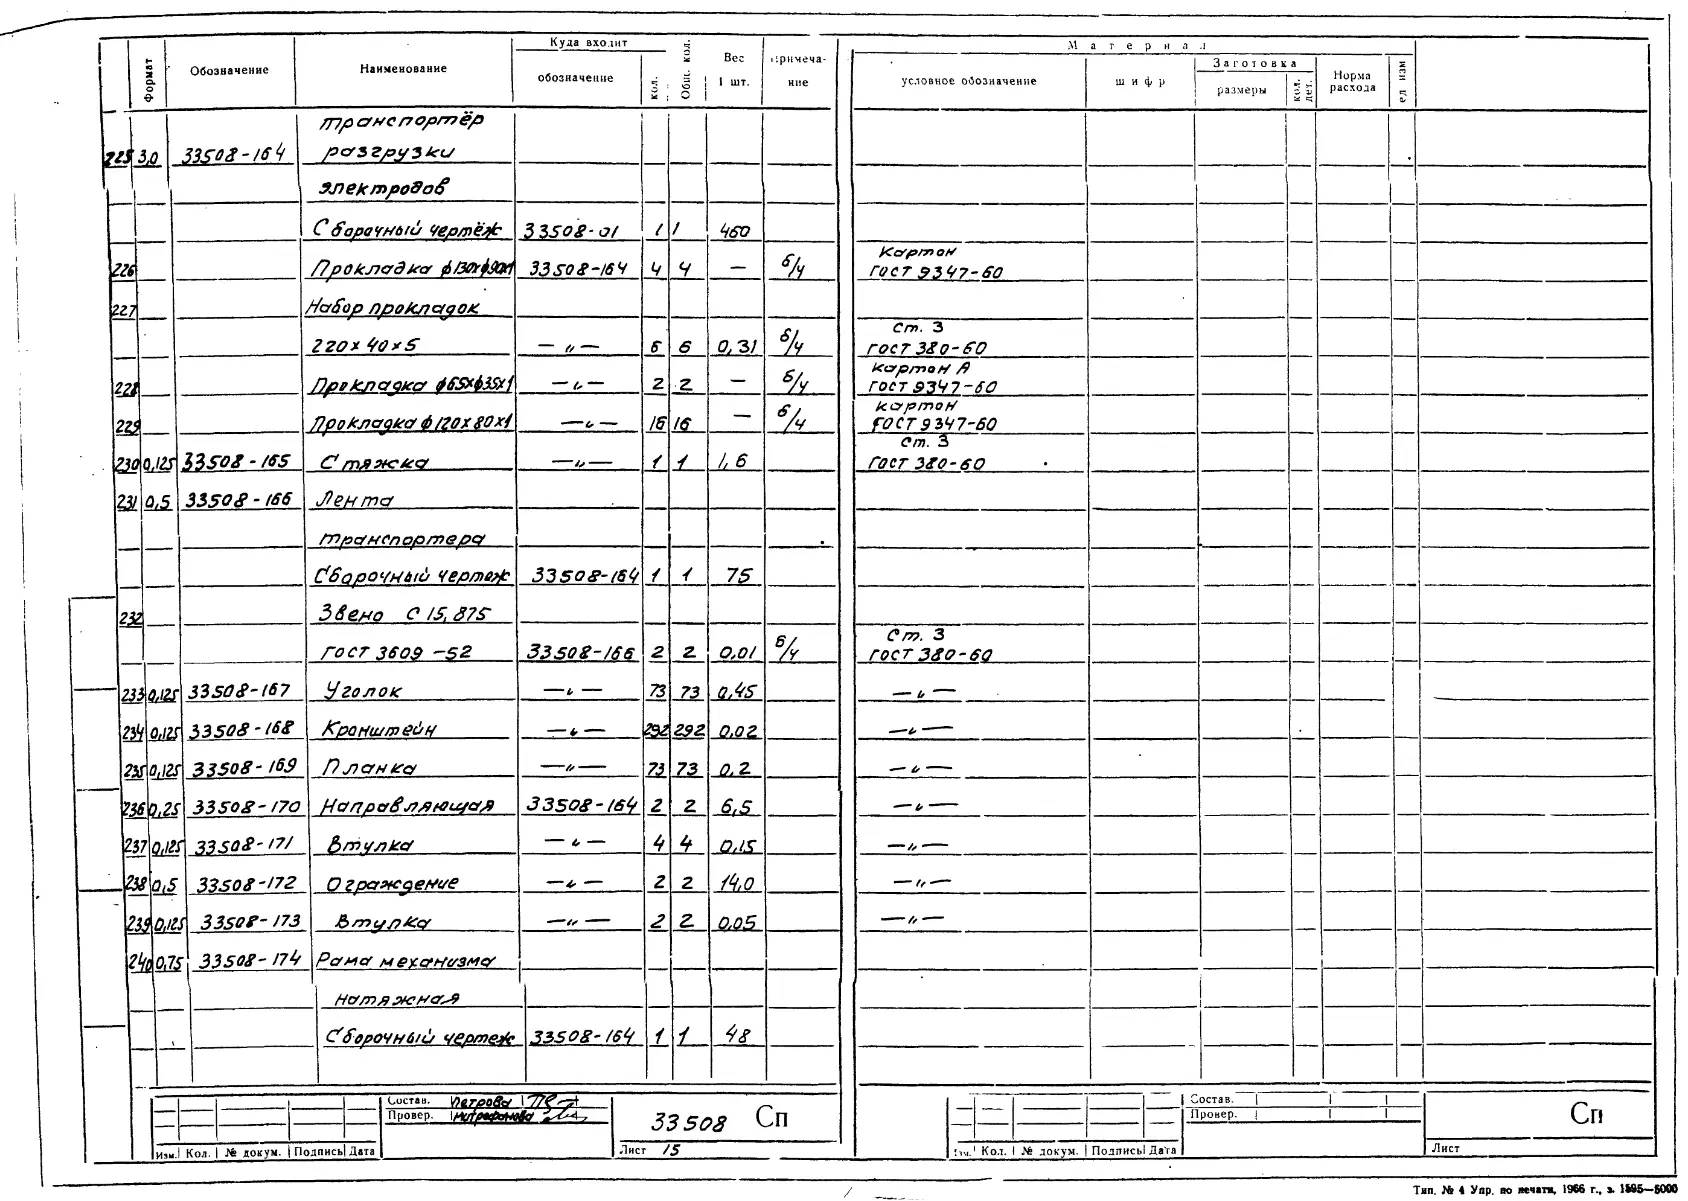 Формат Обозначение Наименование Куда входит обозначение кол. Общ. кол. Вес 1 шт. Примеча-ние Материал условное обозначение шифр Заготовка размеры кол. дет. Норма расхода ед изм
транспортёр
225 3,0 33508-164 разгрузки
электродов
Сборочный чертёж 33508-01 1 1 460
226 Прокладка ф130хф90х1 33508-164 4 4 — б/ч Картон ГОСТ 9347-60
227 Набор прокладок
220х40х5 —〃— 6 6 0,31 б/ч Ст. 3 ГОСТ 380-60
228 Прокладка ф65хф35х1 —〃— 2 2 — б/ч Картон А ГОСТ 9347-60
229 Прокладка ф120х80х1 —〃— 16 16 — б/ч картон ГОСТ 9347-60
230 0,125 33508-165 Стяжка —〃— 1 1 1,6 Ст. 3 ГОСТ 380-60
231 0,5 33508-166 Лента
транспортера
Сборочный чертеж 33508-164 1 1 75
232 Звено С 15,875
ГОСТ 3609-52 33508-166 2 2 0,01 б/ч Ст. 3 ГОСТ 380-60
233 0,125 33508-167 Уголок —〃— 73 73 0,45 —〃—
234 0,125 33508-168 Кронштейн —〃— 292 292 0,02 —〃—
235 0,125 33508-169 Планка —〃— 73 73 0,2 —〃—
236 0,25 33508-170 Направляющая 33508-164 2 2 6,5 —〃—
237 0,125 33508-171 Втулка —〃— 4 4 0,15 —〃—
238 0,5 33508-172 Ограждение —〃— 2 2 14,0 —〃—
239 0,125 33508-173 Втулка —〃— 2 2 0,05 —〃—
240 0,75 33508-174 Рама механизма
натяжная
Сборочный чертеж 33508-164 1 1 48
Состав. Петрова
Провер. Митрофанова
33508 Сп
Изм. Кол. № докум. Подпись Дата
Лист 15
Состав.
Провер.
Сп
Кол. № докум. Подпись Дата
Лист
Тип. № 4 Упр. по печати, 1966 г., з. 1595—5000